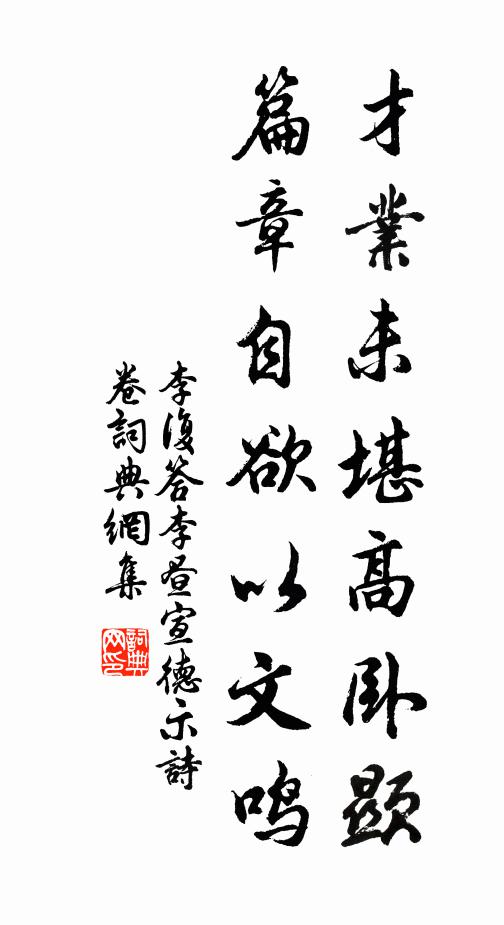 才業未堪高卧顯
篇章自欲以文鸣
李復答李昼宣德示詩
卷詞典網集
詞典网印